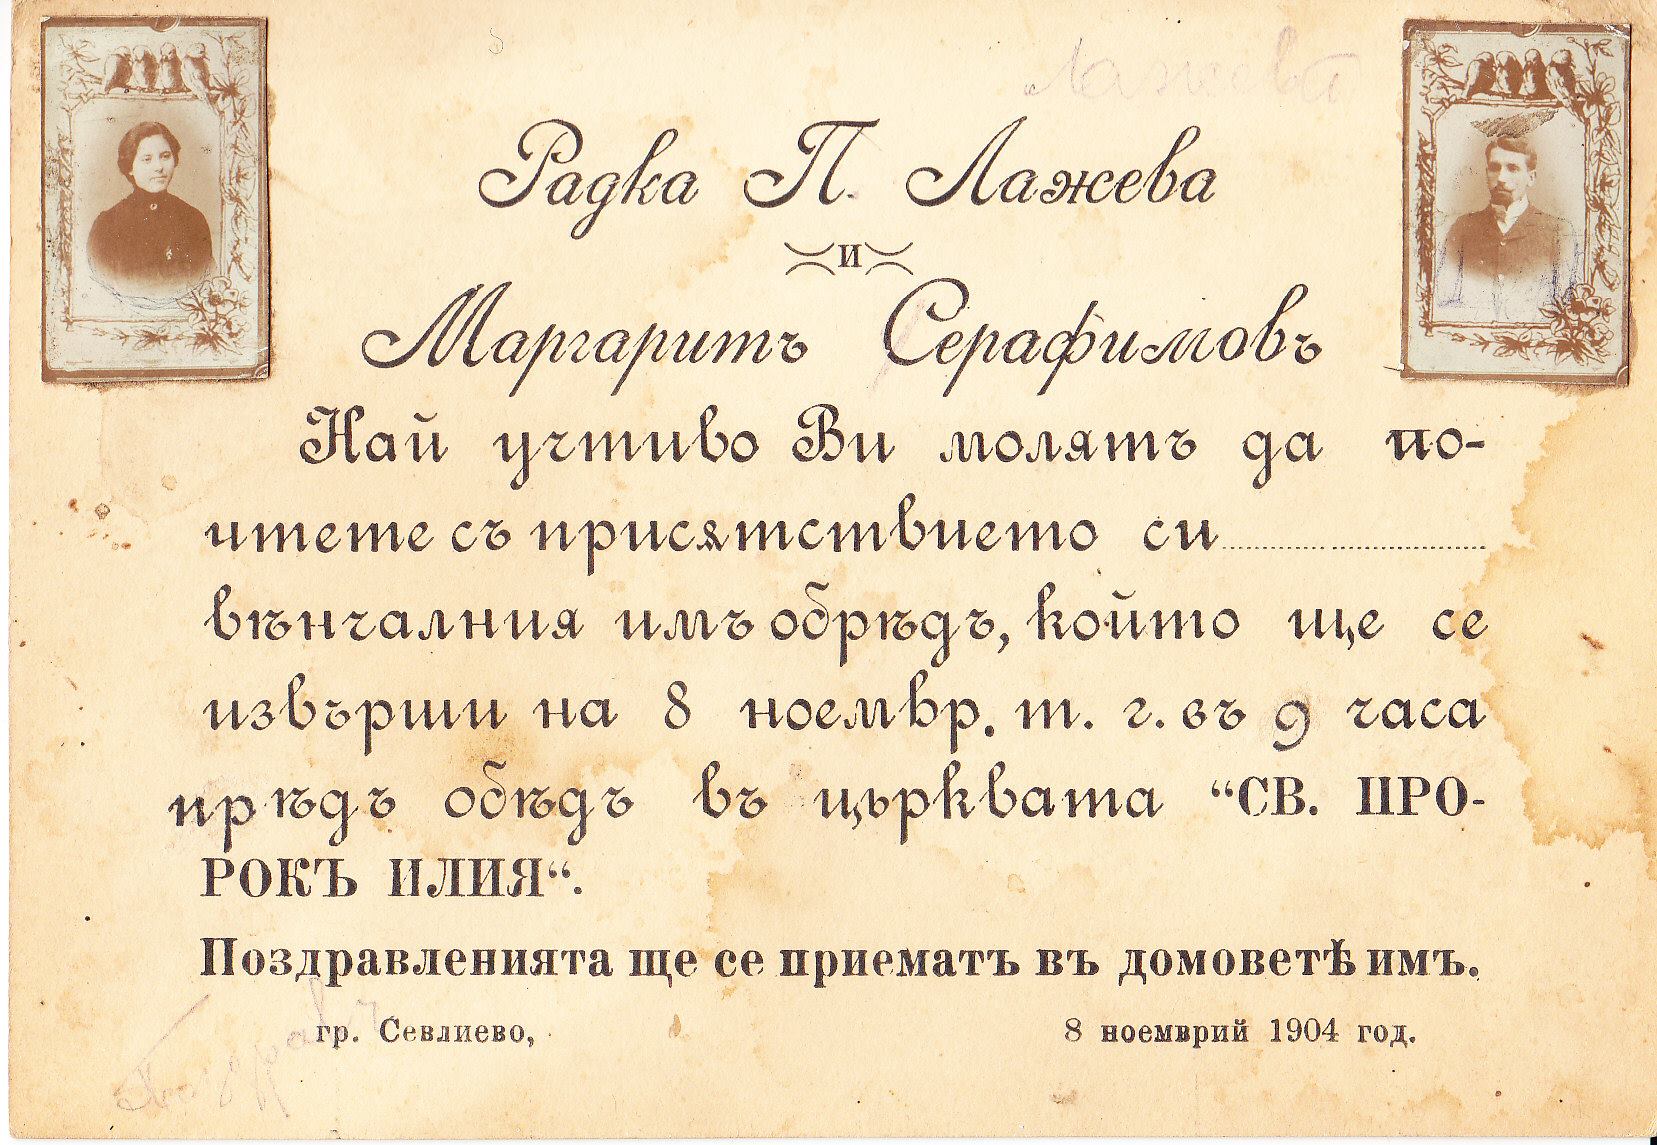 Лажева
Радка П. Лажева
и
Маргаритъ Серафимовъ
Най учтиво Ви молятъ да по-
чтете съ присѫтствието си
вѣнчалния имъ обрѣдъ, който ще се
извърши на 8 ноемвр. т. г. въ 9 часа
прѣдъ обѣдъ въ църквата “СВ. ПРО-
РОКЪ ИЛИЯ“.
Поздравленията ще се приематъ въ домоветѣ имъ.
гр. Севлиево, 8 ноемврий 1904 год.